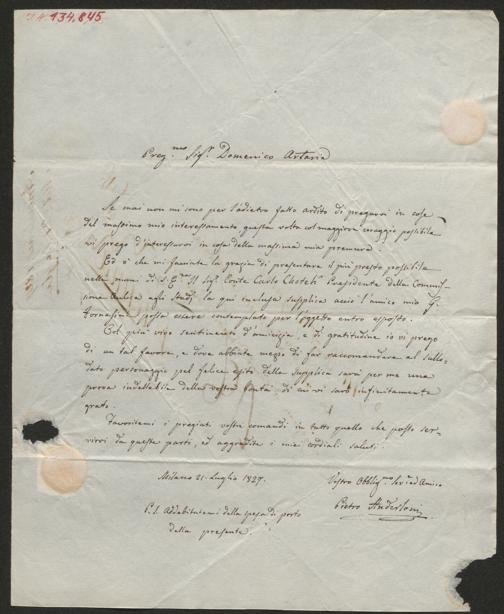 134.845
Preg.mo Sigr. Domenico Artaria
Se mai non mi sono per l'addietro fatto ardito di pregarvi in cose
del massimo mio interessamento, questa volta col maggiore coraggio possibile
vi prego d'interessarvi in cosa della massima mia premura.
Ed è che mi facciate la grazia di presentare il più presto possibile
nelle mani di S. E. Il Sigr. Conte Carlo Chotek Presidente della Commis-
sione Aulica agli Studj la qui inclusa supplica acciò l'amico mio
Fornasini possa essere contemplato per l'oggetto entro esposto.
Col più vivo sentimento d'amicizia, e di gratitudine io vi prego
di un tal favore, e dove abbiate mezzo di far raccomandare al sullo-
dato personaggio pel felice esito della supplica sarà per me una
prova indellebile della vostra bontà di cui vi sarò infinitamente
grato.
Favoritemi i pregiati vostri comandi in tutto quello che posso ser-
virvi da queste parti, ed aggradite i miei cordiali saluti.
Milano 21. Luglio 1827.
Vostro Obblig.mo Ser. ed Amico
Pietro Anderloni
P.S. Addebitatemi della spesa di porto
della presente.